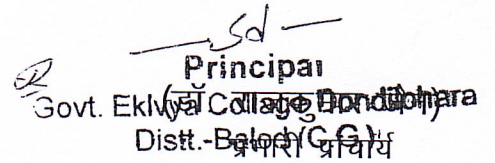 Sd
Principal
Govt. Eklvya College Dondi
Distt.-Balod (C.G.)
प्रभारी प्राचार्य